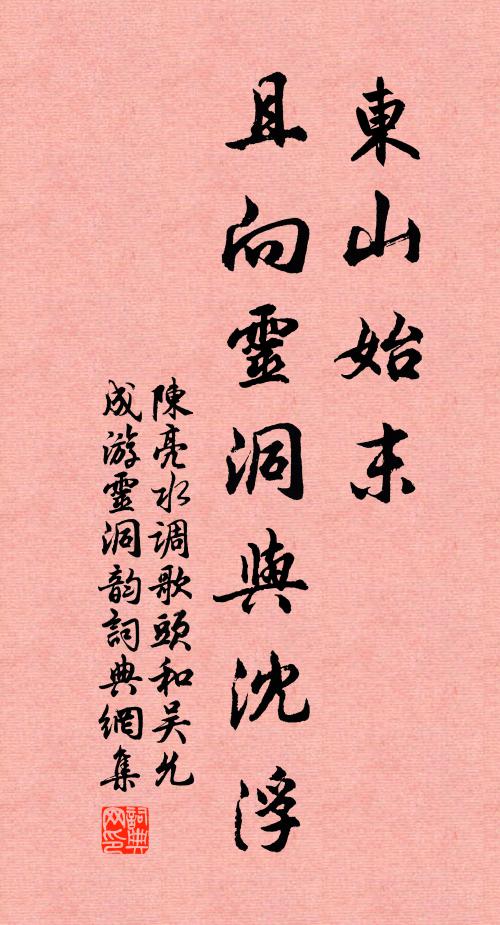 東山始末
且向靈洞與沈浮
陳亮水调歌頭和吴允
成游靈洞韵詞典網集
詞典
网印